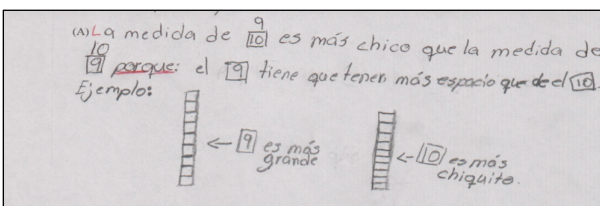 (A) La medida de 9 [10] es más chico que la medida de
10 [9] porque: el [9] tiene que tener más espacio que de el [10].
Ejemplo:
← [9] es más
grande
← [10] es más
chiquito.